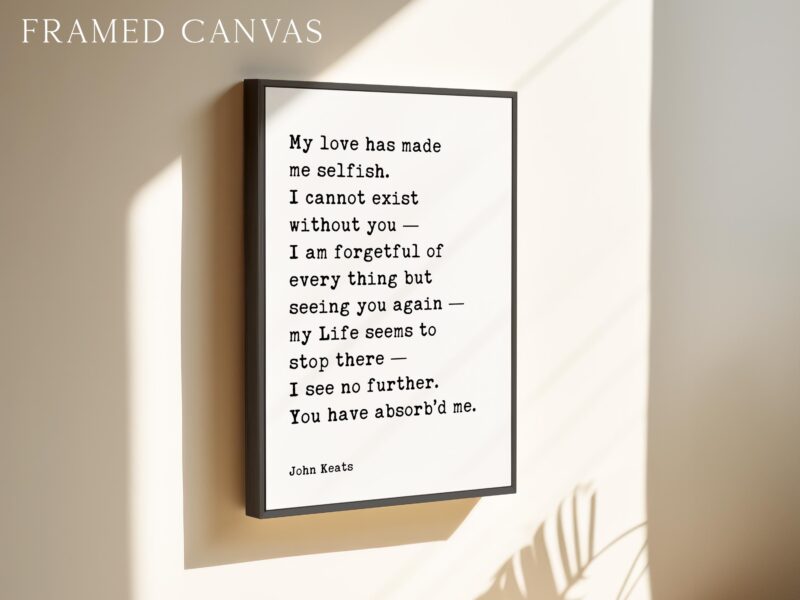 FRAMED CANVAS
My love has made
me selfish.
I cannot exist
without you —
I am forgetful of
every thing but
seeing you again —
my Life seems to
stop there —
I see no further.
You have absorb'd me.
John Keats